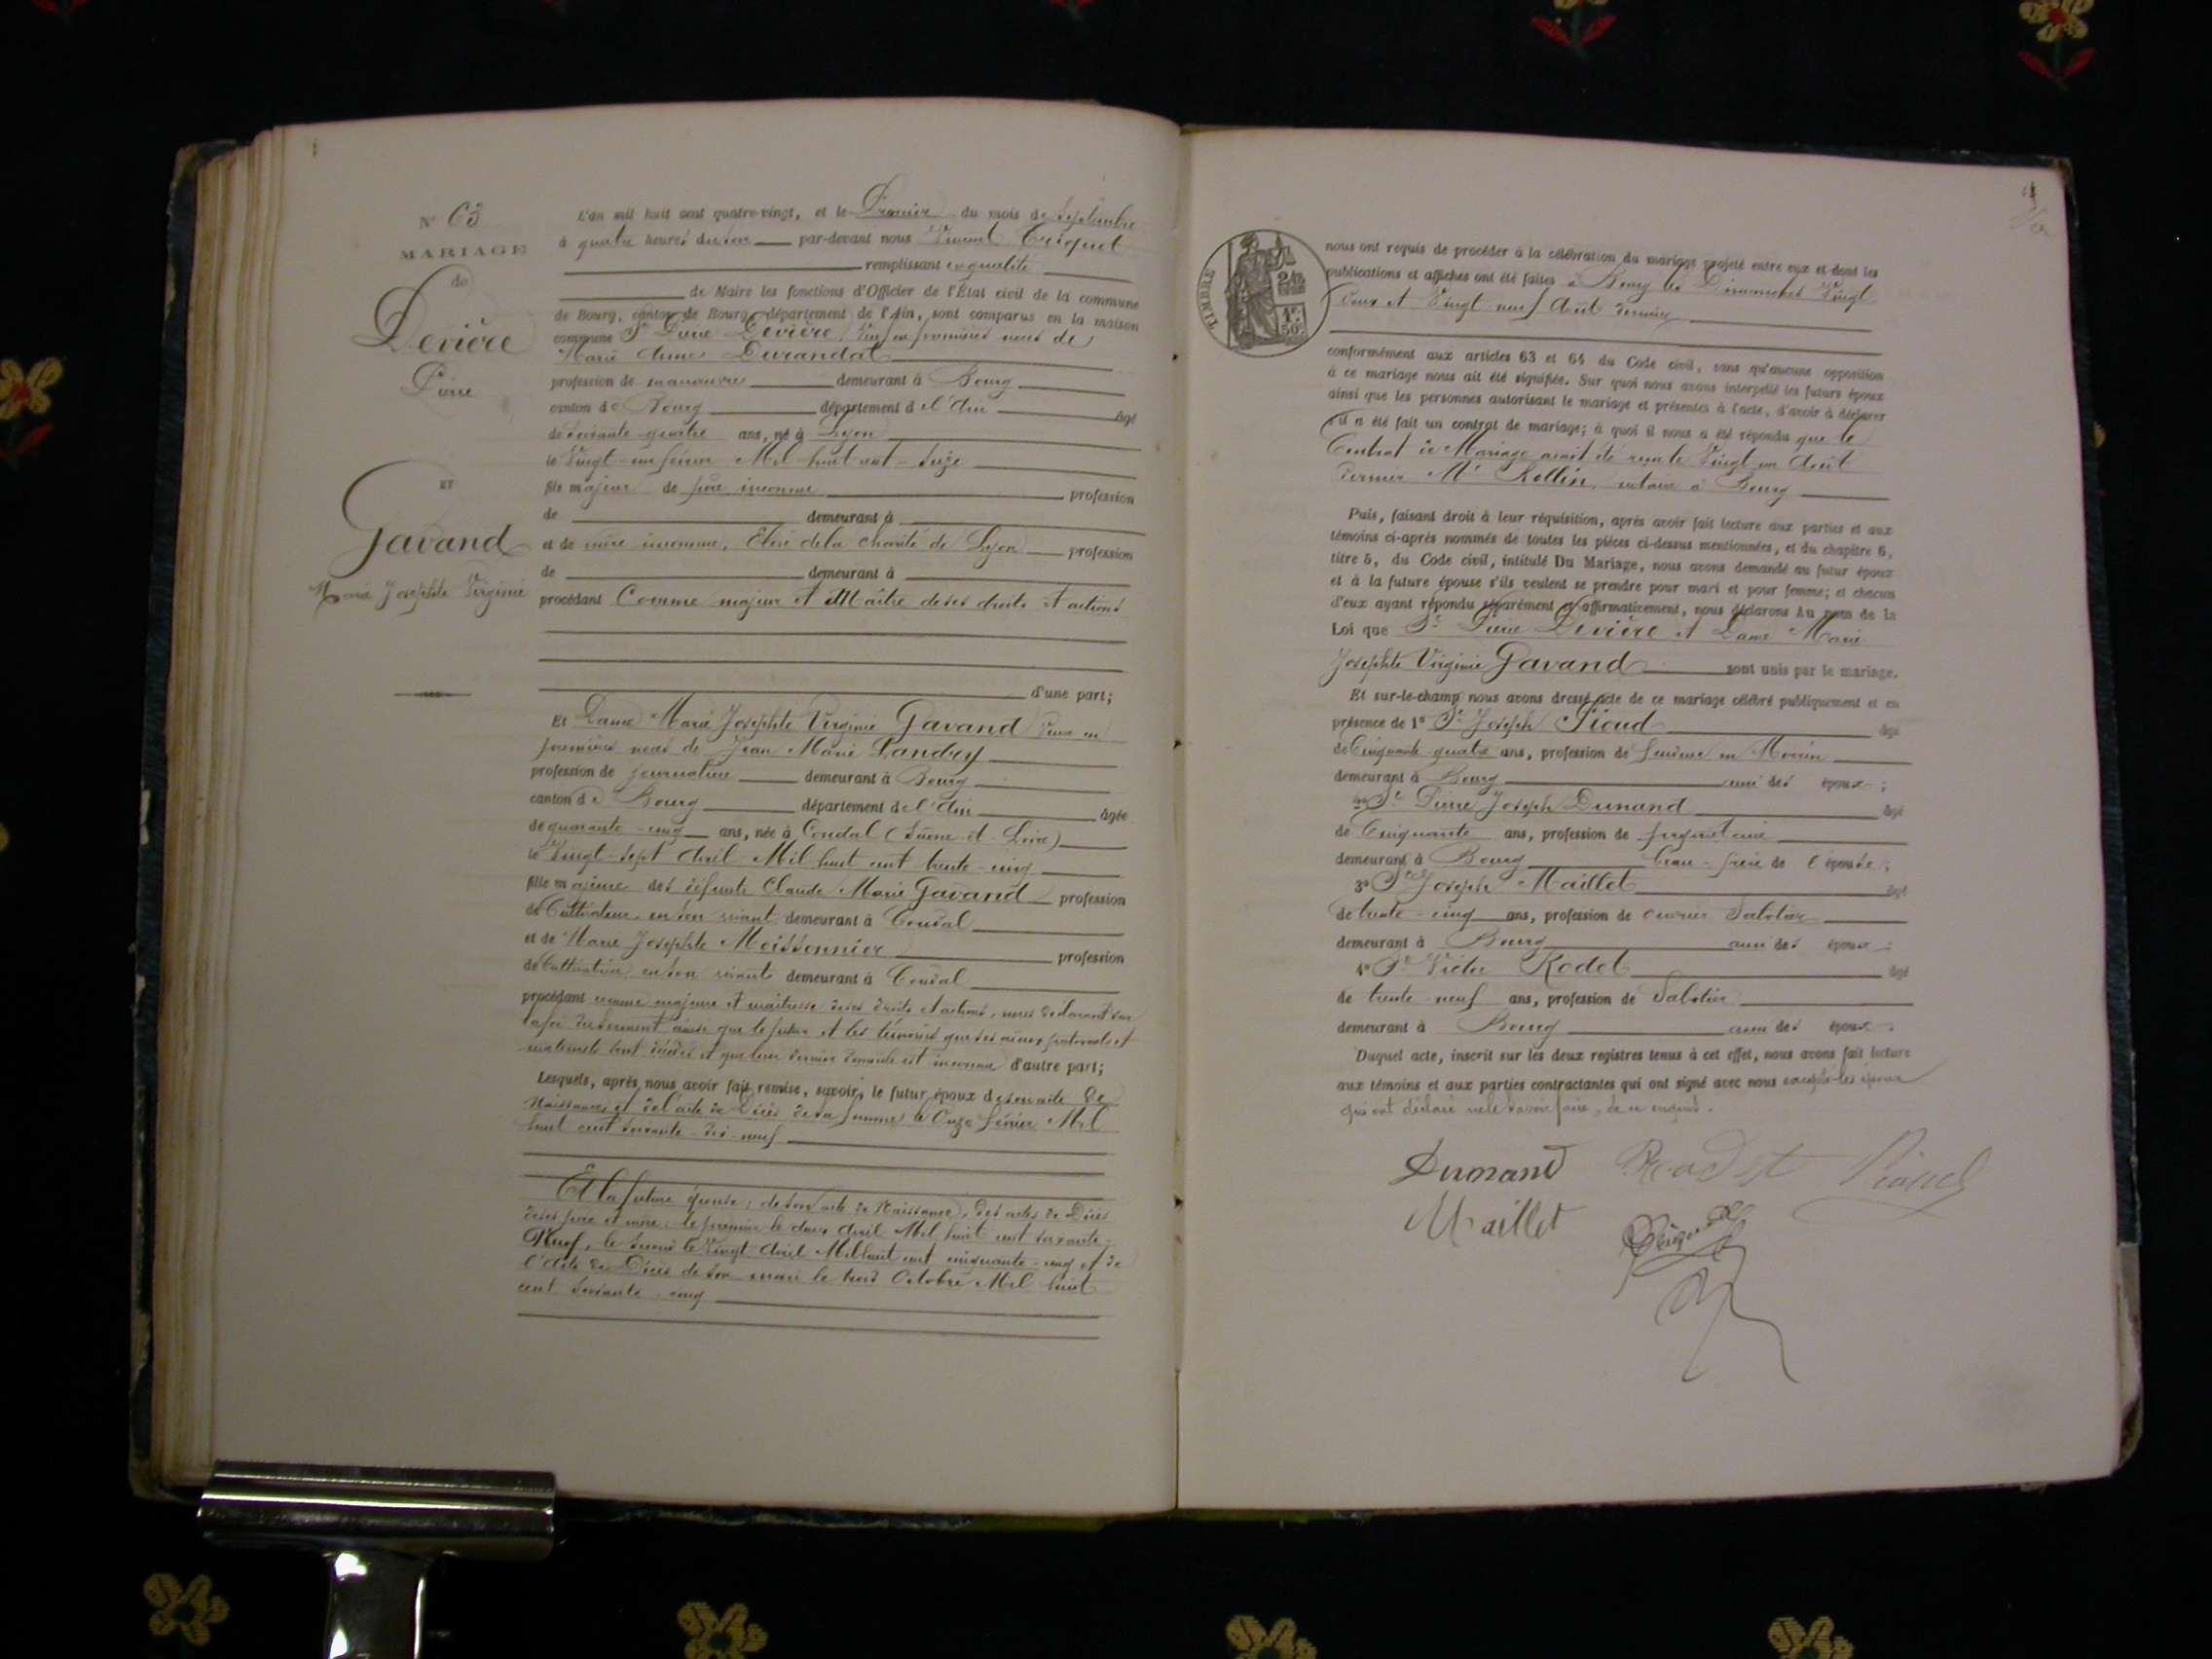 N° 63
MARIAGE
de
Devière
Pierre
ET
Gavand
Marie Josephte Virginie
L'an mil huit cent quatre-vingt, et le Premier du mois de Septembre
à quatre heures du soir par-devant nous Vincent
remplissant en qualité
de Maire les fonctions d'Officier de l'État civil de la commune
de Bourg, canton de Bourg, département de l'Ain, sont comparus en la maison
commune Sr Pierre Devière, Veuf en premières noces de
Marie Anne Durandat
profession de manœuvre demeurant à Bourg
canton de Bourg département de l'Ain âgé
de soixante-quatre ans, né à Lyon
le Vingt-un février Mil-huit cent-seize
fils majeur de père inconnu profession
de demeurant à
et de mère inconnue, Elève de la charité de Lyon profession
de demeurant à
procédant Comme majeur et Maître de ses droits et actions
d'une part;
Et Dame Marie Josephte Virginie Gavand Veuve en
premières noces de Jean Marie Landrey
profession de journalière demeurant à Bourg
canton de Bourg département de l'Ain âgée
de quarante-cinq ans, née à Condal (Saône et Loire)
le Vingt-sept Avril Mil huit cent trente-cinq
fille majeure des défunts Claude Marie Gavand profession
de Cultivateur en son vivant demeurant à Condal
et de Marie Josephte Moissonnier profession
de Cultivatrice en son vivant demeurant à Condal
procédant comme majeure et maîtresse de ses droits et actions, nous déclarant sur
la foi du serment ainsi que le futur et les témoins que ses aïeux paternels et
maternels sont décédés et que leur dernier domicile est inconnu d'autre part;
Lesquels, après nous avoir fait remise, savoir, le futur époux de son acte de
Naissance et de l'acte de Décès de sa femme le Onze février Mil
huit cent soixante-dix-neuf
Et la future épouse; de son acte de Naissance, des actes de Décès
de ses père et mère, le premier le deux Avril Mil huit cent soixante-
Neuf, le second le Vingt Avril Mil huit cent cinquante-cinq et de
l'Acte de Décès de son mari le trois Octobre Mil huit
cent soixante-cinq
TIMBRE
1F
50c
nous ont requis de procéder à la célébration du mariage projeté entre eux et dont les
publications et affiches ont été faites à Bourg les Dimanches Vingt-
deux et Vingt-neuf Août dernier
conformément aux articles 63 et 64 du Code civil, sans qu'aucune opposition
à ce mariage nous ait été signifiée. Sur quoi nous avons interpellé les futurs époux
ainsi que les personnes autorisant le mariage et présentes à l'acte, d'avoir à déclarer
s'il a été fait un contrat de mariage; à quoi il nous a été répondu que le
Contrat de Mariage avait été reçu le Vingt un Août
dernier Me Rollin, notaire à Bourg
Puis, faisant droit à leur réquisition, après avoir fait lecture aux parties et aux
témoins ci-après nommés de toutes les pièces ci-dessus mentionnées, et du chapitre 6,
titre 5, du Code civil, intitulé Du Mariage, nous avons demandé au futur époux
et à la future épouse s'ils veulent se prendre pour mari et pour femme; et chacun
d'eux ayant répondu séparément et affirmativement, nous déclarons Au nom de la
Loi que Sr Pierre Devière et Dame Marie
Josephte Virginie Gavand sont unis par le mariage.
Et sur-le-champ nous avons dressé acte de ce mariage célébré publiquement et en
présence de 1° Sr Joseph Pioud âgé
de Cinquante quatre ans, profession de
demeurant à Bourg ami des époux;
2° Sr Pierre Joseph Dunand âgé
de Cinquante ans, profession de propriétaire
demeurant à Bourg beau-frère de l'épouse;
3° Sr Joseph Maillet âgé
de trente-cinq ans, profession de ouvrier Sabotier
demeurant à Bourg ami des époux;
4° Sr Victor Rodet âgé
de trente-neuf ans, profession de Sabotier
demeurant à Bourg ami des époux.
Duquel acte, inscrit sur les deux registres tenus à cet effet, nous avons fait lecture
aux témoins et aux parties contractantes qui ont signé avec nous excepté les époux
qui ont déclaré ne le savoir faire, de ce enquis.
Dunand Rodet Pioud
Maillet